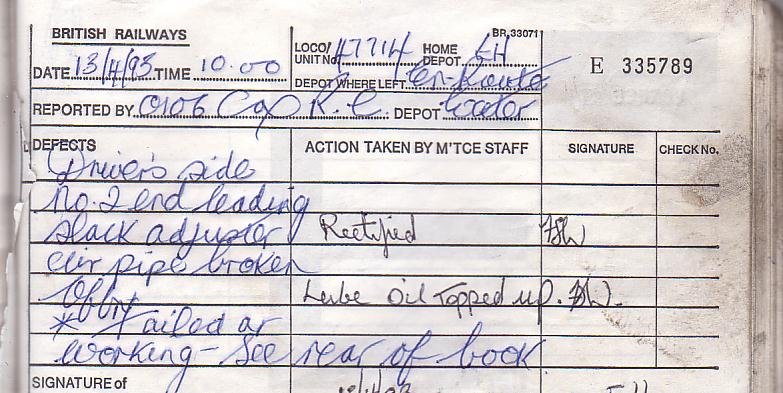 BRITISH RAILWAYS
BR.33071
LOCO/ UNIT No. 47714 HOME DEPOT EH
E 335789
DATE 13/4/93 TIME 10.00
DEPOT WHERE LEFT En-Route
REPORTED BY 0106 Cox R.C. DEPOT
DEFECTS ACTION TAKEN BY M'TCE STAFF SIGNATURE CHECK No.
Driver's side
No. 2 end leading
slack adjuster Rectified
air pipe broken
Lube oil Topped up.
* Failed
working - See rear of book
SIGNATURE of